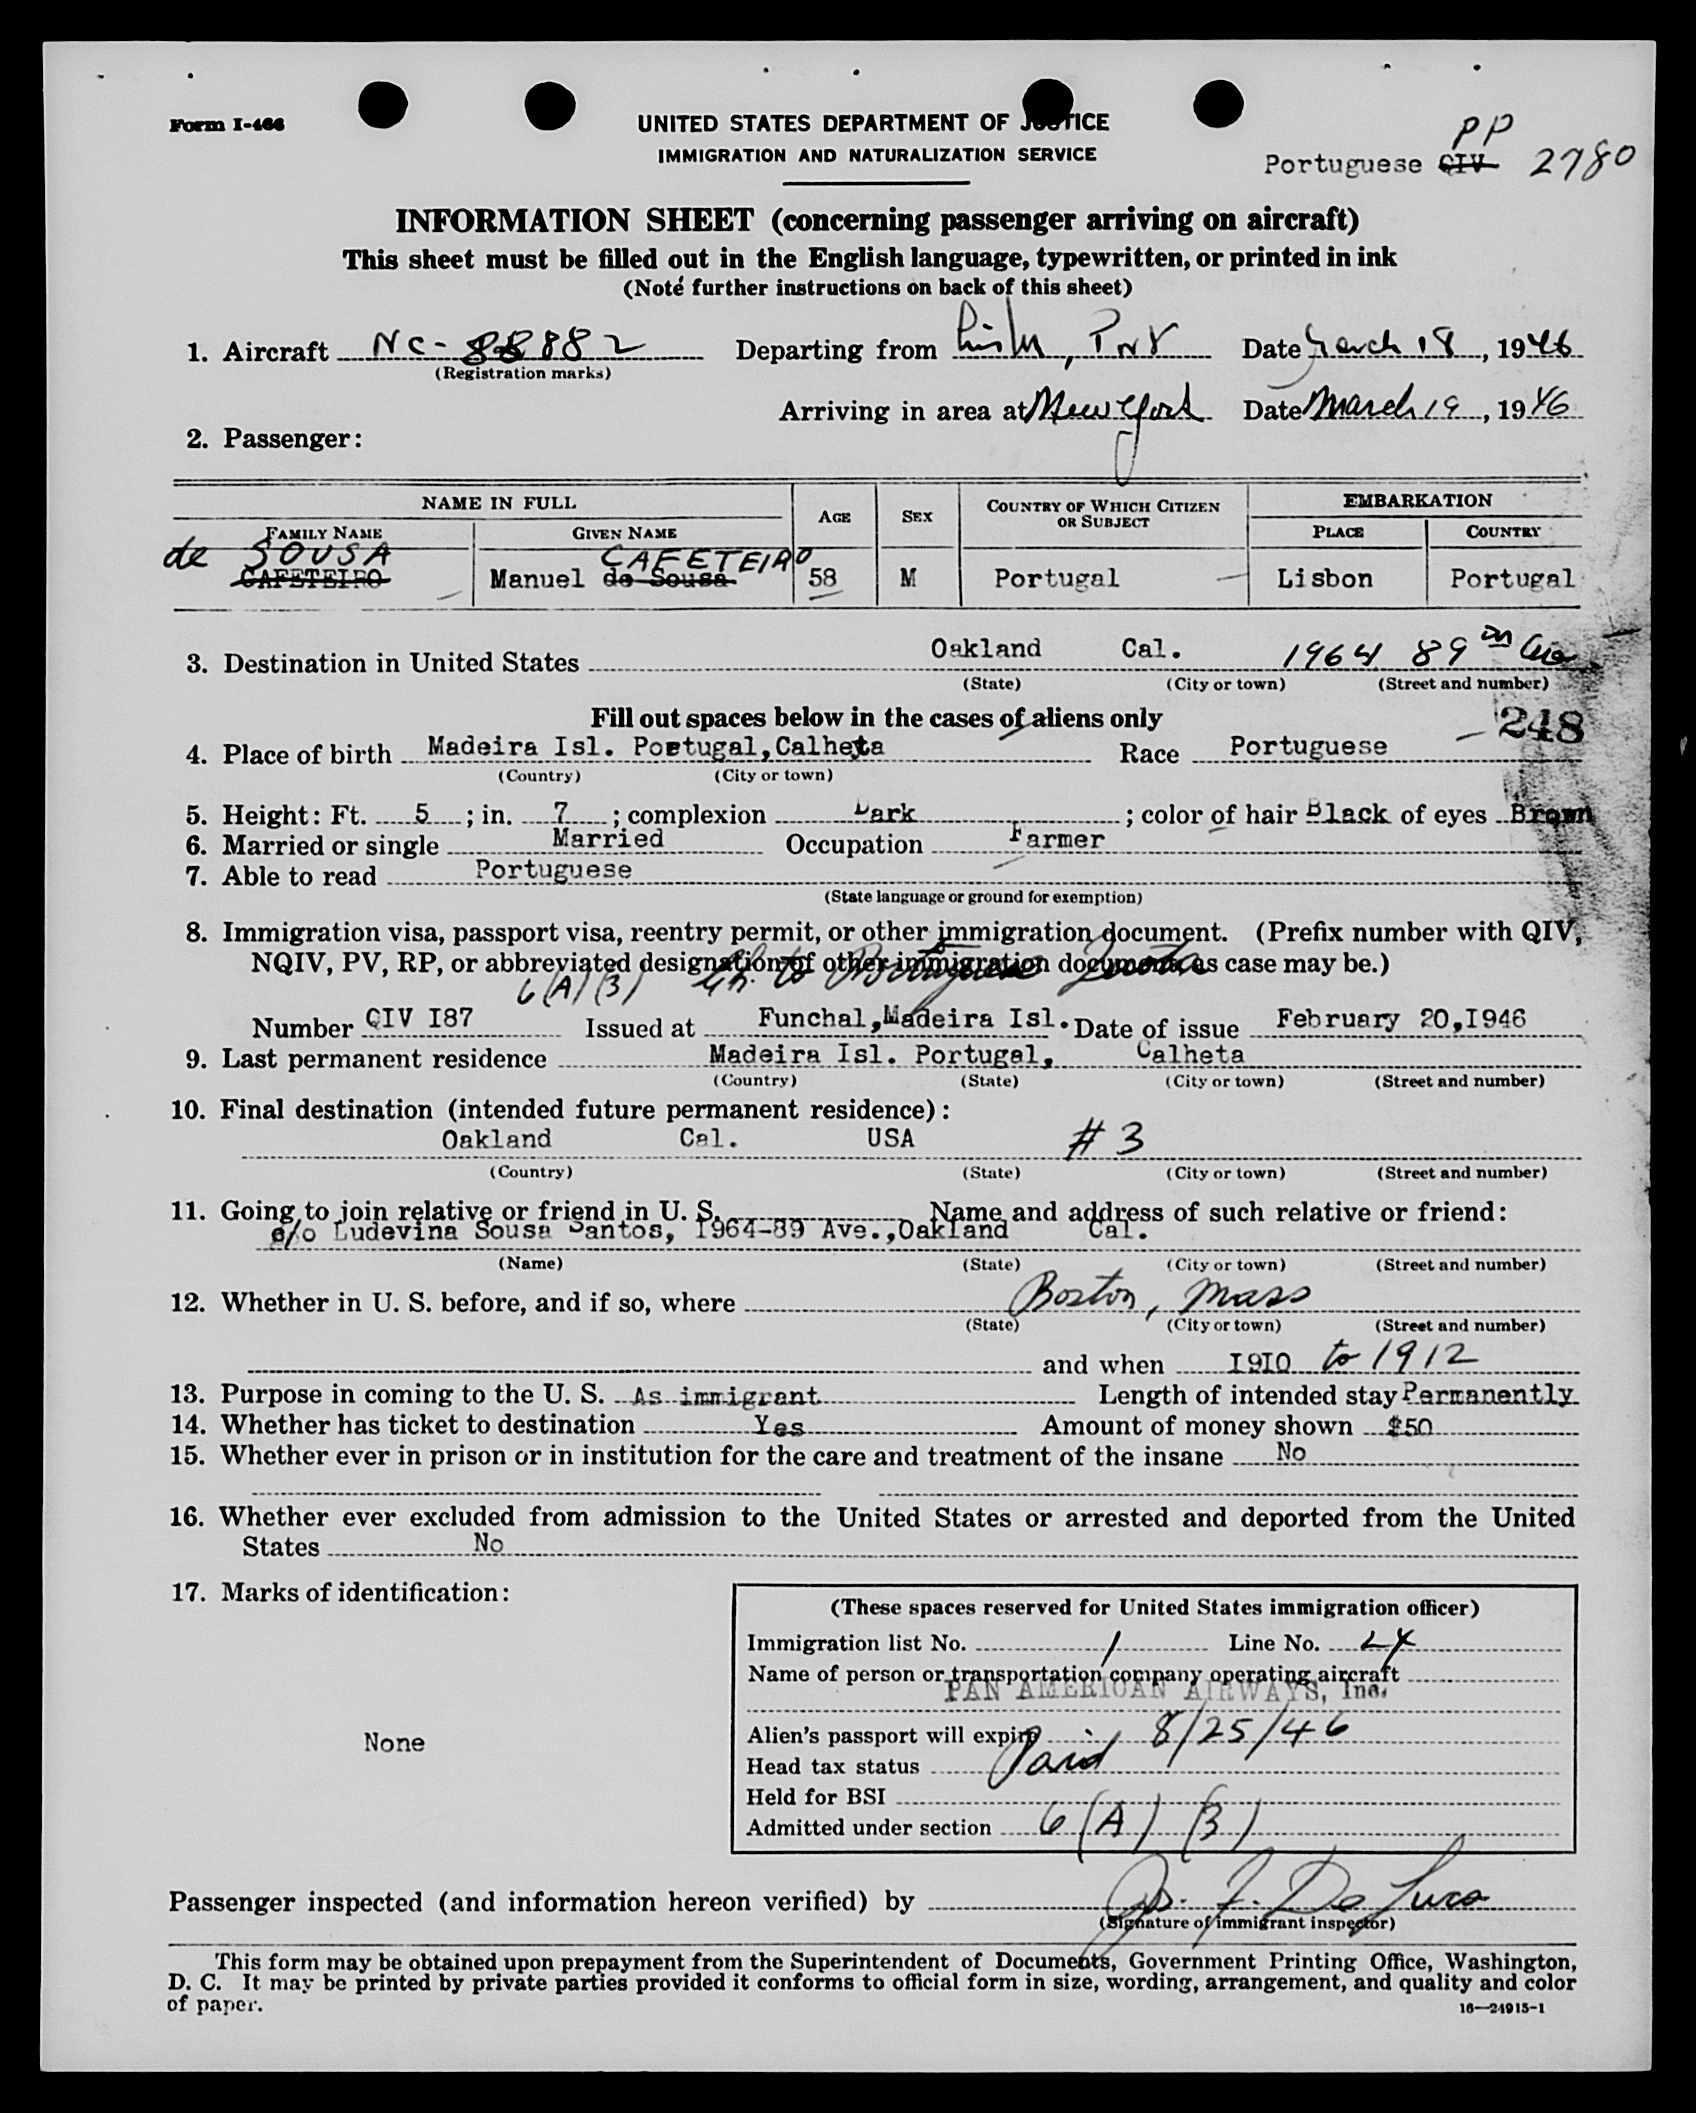 Form I-466
UNITED STATES DEPARTMENT OF JUSTICE
IMMIGRATION AND NATURALIZATION SERVICE
PP
Portuguese QIV 2780
INFORMATION SHEET (concerning passenger arriving on aircraft)
This sheet must be filled out in the English language, typewritten, or printed in ink
(Note further instructions on back of this sheet)
1. Aircraft NC-88882 Departing from Date March 18, 1946
(Registration marks)
Arriving in area at New York Date March 19, 1946
2. Passenger:
NAME IN FULL AGE SEX COUNTRY OF WHICH CITIZEN OR SUBJECT EMBARKATION
FAMILY NAME GIVEN NAME PLACE COUNTRY
de SOUSA CAFETEIRO
CAFETEIRO Manuel de Sousa 58 M Portugal Lisbon Portugal
3. Destination in United States Oakland Cal. 1964 89
(State) (City or town) (Street and number)
Fill out spaces below in the cases of aliens only
248
4. Place of birth Madeira Isl. Poetugal, Calheta Race Portuguese
(Country) (City or town)
5. Height: Ft. 5; in. 7; complexion Dark; color of hair Black of eyes Brown
6. Married or single Married Occupation Farmer
7. Able to read Portuguese
(State language or ground for exemption)
8. Immigration visa, passport visa, reentry permit, or other immigration document. (Prefix number with QIV,
NQIV, PV, RP, or abbreviated designation of other immigration document, as case may be.)
6(A)(3) Ch. to Portuguese Quota
Number QIV I87 Issued at Funchal, Madeira Isl. Date of issue February 20,I946
9. Last permanent residence Madeira Isl. Portugal, Calheta
(Country) (State) (City or town) (Street and number)
10. Final destination (intended future permanent residence):
Oakland Cal. USA #3
(Country) (State) (City or town) (Street and number)
11. Going to join relative or friend in U. S. Name and address of such relative or friend:
c/o Ludevina Sousa Santos, I964-89 Ave., Oakland Cal.
(Name) (State) (City or town) (Street and number)
12. Whether in U. S. before, and if so, where Boston, Mass
(State) (City or town) (Street and number)
and when I9I0 to 1912
13. Purpose in coming to the U. S. As immigrant Length of intended stay Permanently
14. Whether has ticket to destination Yes Amount of money shown $50
15. Whether ever in prison or in institution for the care and treatment of the insane No
16. Whether ever excluded from admission to the United States or arrested and deported from the United
States No
17. Marks of identification:
None
(These spaces reserved for United States immigration officer)
Immigration list No. 1 Line No.
Name of person or transportation company operating aircraft
PAN AMERICAN AIRWAYS, Inc.
Alien's passport will expire 8/25/46
Head tax status Paid
Held for BSI
Admitted under section 6(A)(3)
Passenger inspected (and information hereon verified) by
(Signature of immigrant inspector)
This form may be obtained upon prepayment from the Superintendent of Documents, Government Printing Office, Washington,
D. C. It may be printed by private parties provided it conforms to official form in size, wording, arrangement, and quality and color
of paper.
16—24915-1